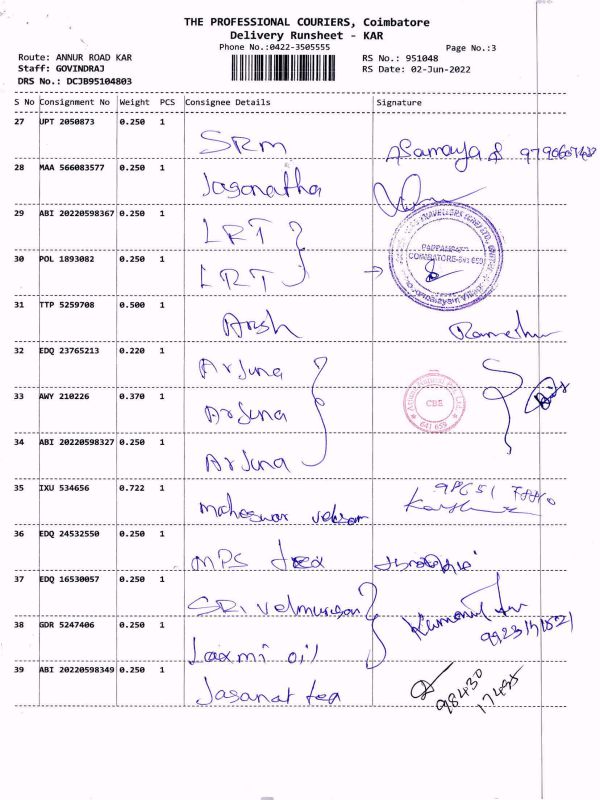 THE PROFESSIONAL COURIERS, Coimbatore
Delivery Runsheet - KAR
Phone No.:0422-3505555
Page No.:3
Route: ANNUR ROAD KAR
RS No.: 951048
Staff: GOVINDRAJ
RS Date: 02-Jun-2022
DRS No.: DCJB95104803
S No Consignment No Weight PCS Consignee Details Signature
27 UPT 2050873 0.250 1
SRM
28 MAA 566083577 0.250 1
Jaganatha
29 ABI 20220598367 0.250 1
LRT
30 POL 1893082 0.250 1
LRT
COIMBATORE
31 TTP 5259708 0.500 1
Arsh
Rameshw
32 EDQ 23765213 0.220 1
Arjuna
33 AWY 210226 0.370 1
Arjuna
CBE
641 659
34 ABI 20220598327 0.250 1
Arjuna
35 IXU 534656 0.722 1
Maheswar
36 EDQ 24532550 0.250 1
MPS tea
37 EDQ 16530057 0.250 1
SRi velmurugan
38 GDR 5247406 0.250 1
Laxmi oil
39 ABI 20220598349 0.250 1
Jaganat tea
98430
17495